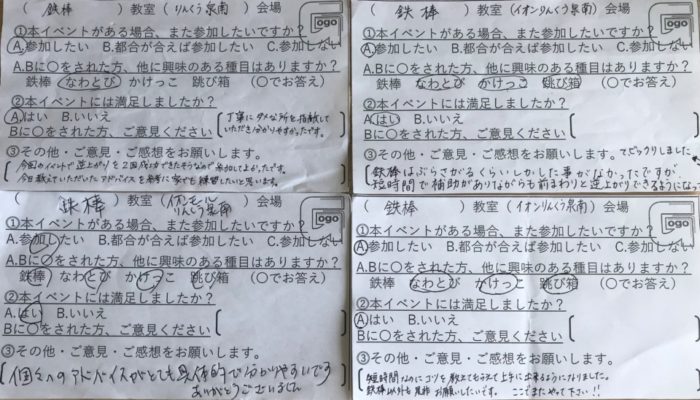 ( 鉄棒 )教室 ( りんくう泉南 ) 会場
①本イベントがある場合、また参加したいですか?
A.参加したい B.都合が合えば参加 C.参加しない
A.Bに〇をされた方、他に興味のある種目はありますか?
鉄棒 なわとび かけっこ 跳び箱 (〇でお答え)
②本イベントには満足しましたか?
A.はい B.いいえ
Bに〇をされた方、ご意見ください
丁寧にダメな所を指摘して
いただき分かりやすかったです。
③その他・ご意見・ご感想をお願いします。
今回のイベントで逆上がりを2回成功できたそうなので参加してよかったです。
今日教えていただいたアドバイスを参考に家でも練習したいと思います。
ogo
( 鉄棒 )教室 (イオンりんくう泉南) 会場
①本イベントがある場合、また参加したいですか?
A.参加したい B.都合が合えば参加 C.参加しない
A.Bに〇をされた方、他に興味のある種目はありますか?
鉄棒 なわとび かけっこ 跳び箱 (〇でお答え)
②本イベントには満足しましたか?
A.はい B.いいえ
Bに〇をされた方、ご意見ください
③その他・ご意見・ご感想をお願いします。
てびっくりしました。
鉄棒はぶらさがるくらいしかした事がなかったですが
短時間で補助がありながらも前まわりと逆上がりできるようにな
ogo
( 鉄棒 )教室 (イオンモールりんくう泉南) 会場
①本イベントがある場合、また参加したいですか?
A.参加したい B.都合が合えば参加 C.参加しない
A.Bに〇をされた方、他に興味のある種目はありますか?
鉄棒 なわとび かけっこ 跳び箱 (〇でお答え)
②本イベントには満足しましたか?
A.はい B.いいえ
Bに〇をされた方、ご意見ください
③その他・ご意見・ご感想をお願いします。
個々へのアドバイスがとても具体的で分かりやすいです
ありがとうございました
ogo
( 鉄棒 )教室 (イオンりんくう泉南) 会場
①本イベントがある場合、また参加したいですか?
A.参加したい B.都合が合えば参加 C.参加しない
A.Bに〇をされた方、他に興味のある種目はありますか?
鉄棒 なわとび かけっこ 跳び箱 (〇でお答え)
②本イベントには満足しましたか?
A.はい B.いいえ
Bに〇をされた方、ご意見ください
③その他・ご意見・ご感想をお願いします。
短時間なのにコツを教えてもらえて上手に出来るようになりました。
鉄棒以外も是非お願いしたいです。 ここでまたやって下さい!!
ogo